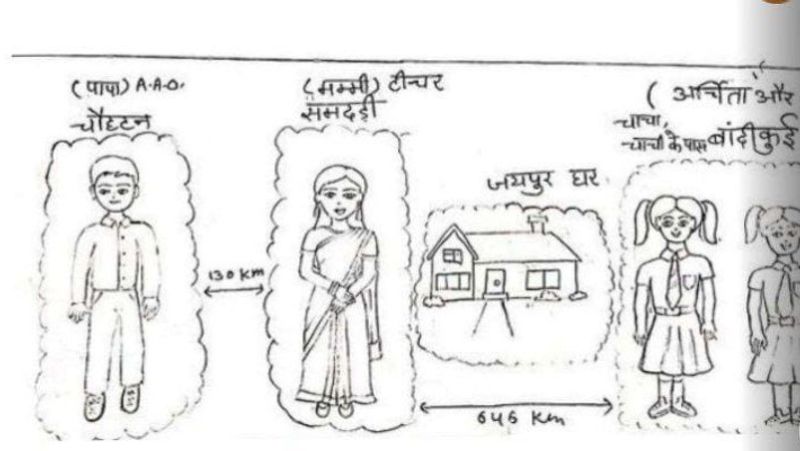 (पापा) A.A.O.
चौहटन
(मम्मी) टीचर
समदड़ी
(अर्चिता और
चाचा,
चाची के पास बांदीकुई
जयपुर घर
130 Km
646 Km